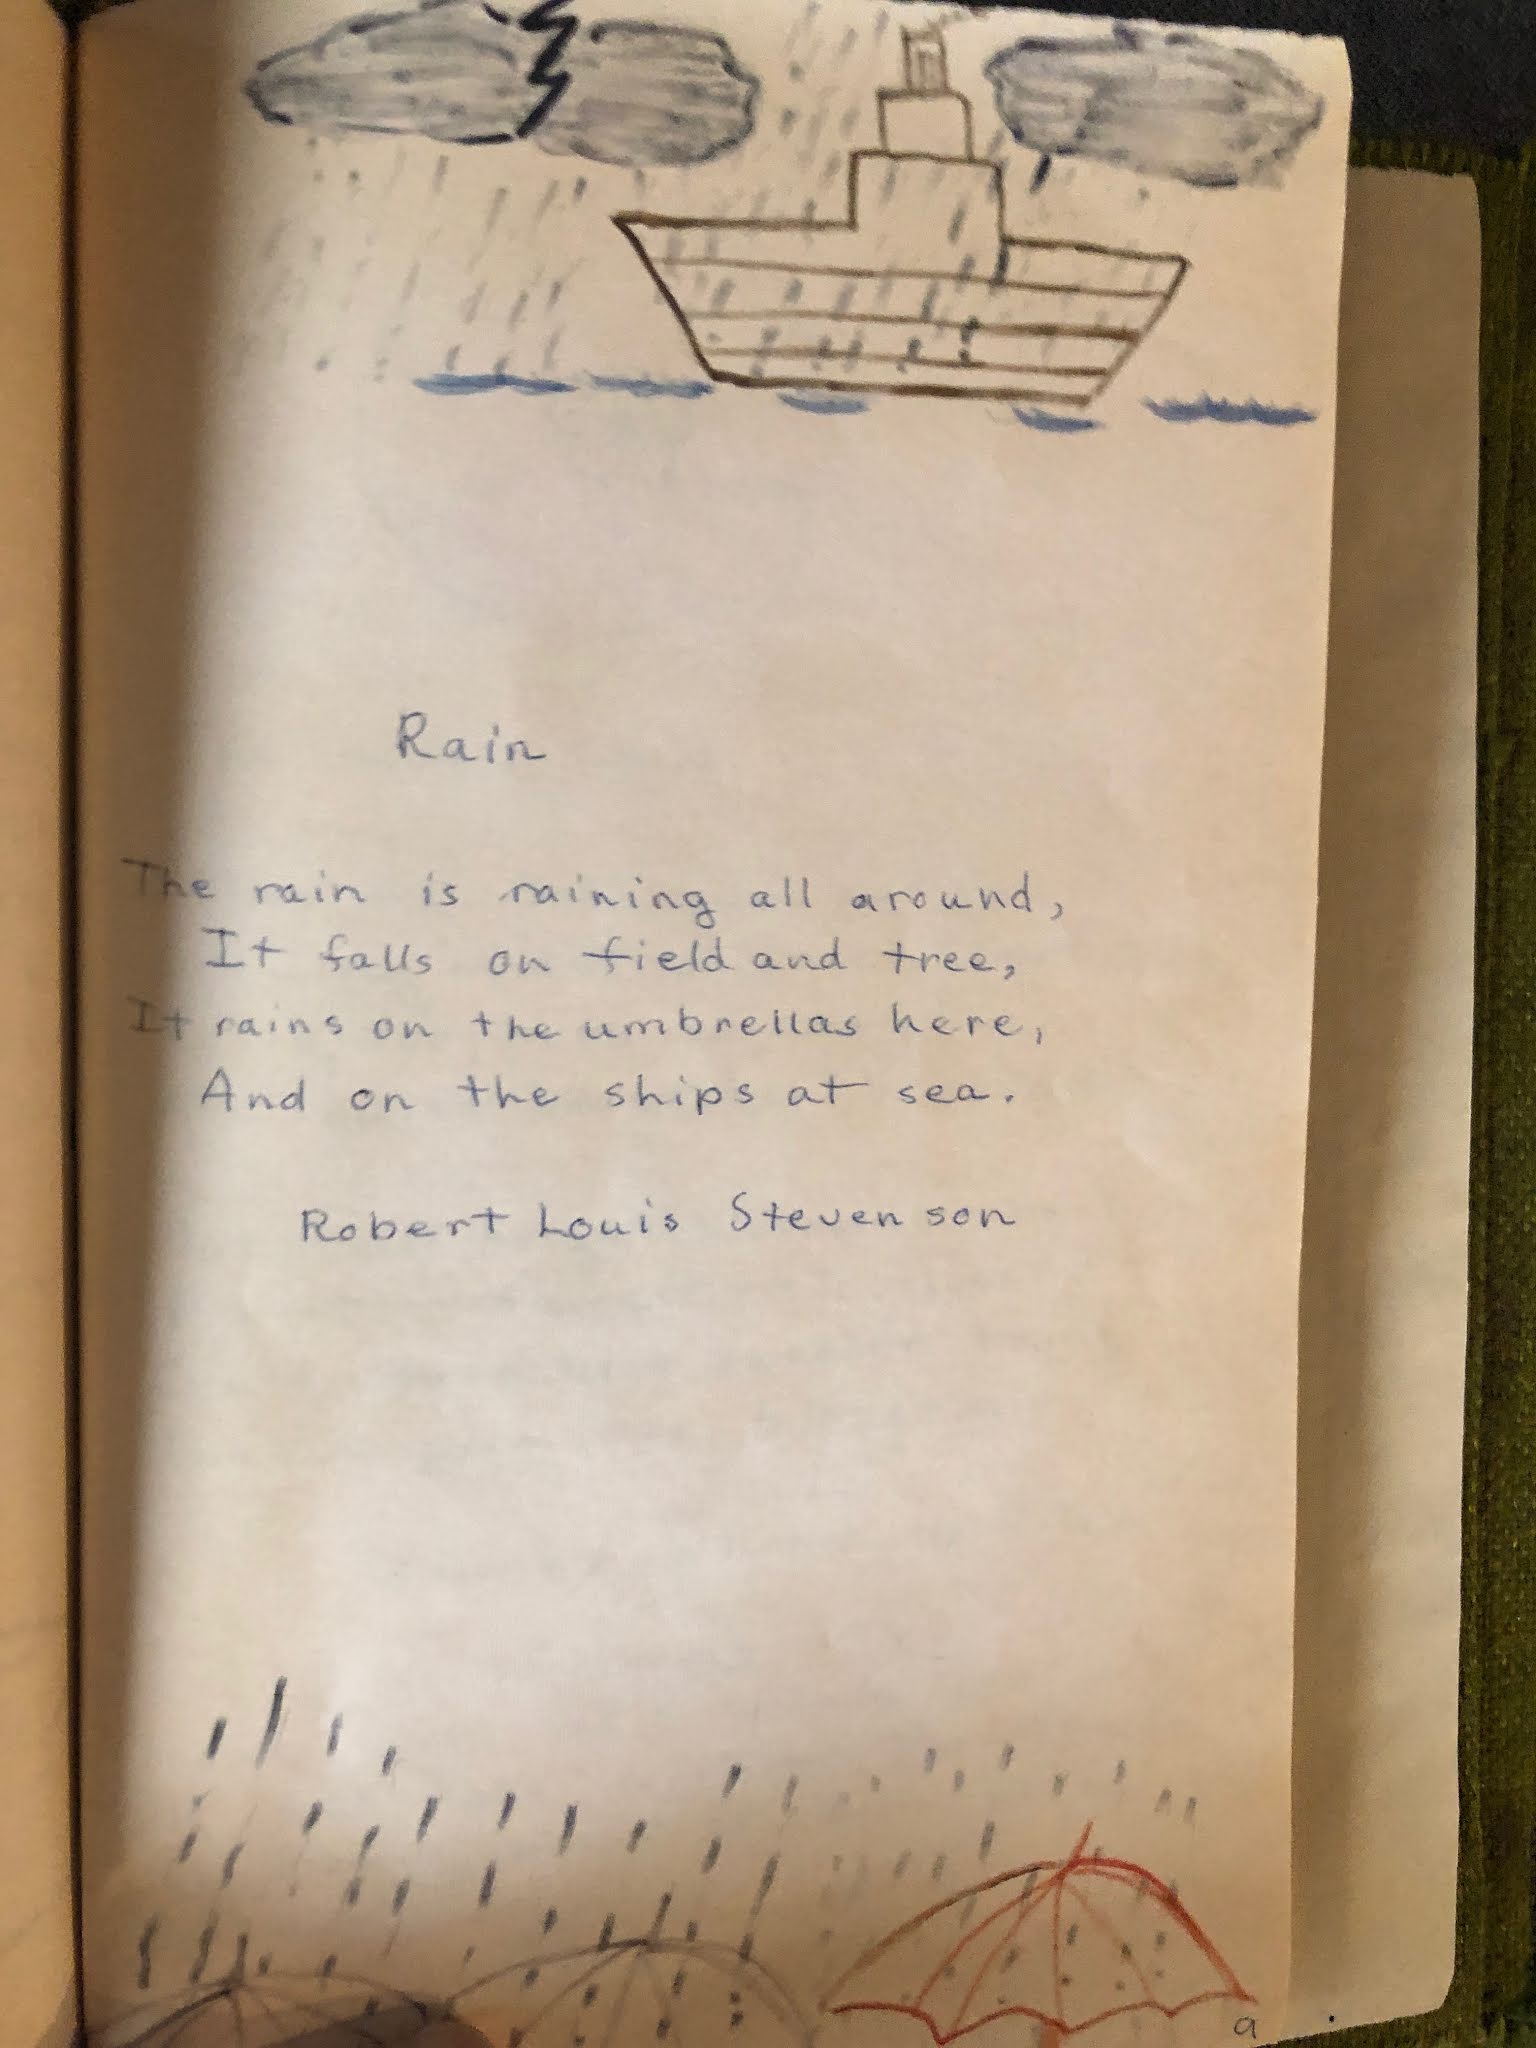 Rain
The rain is raining all around,
It falls on field and tree,
It rains on the umbrellas here,
And on the ships at sea.
Robert Louis Stevenson
a